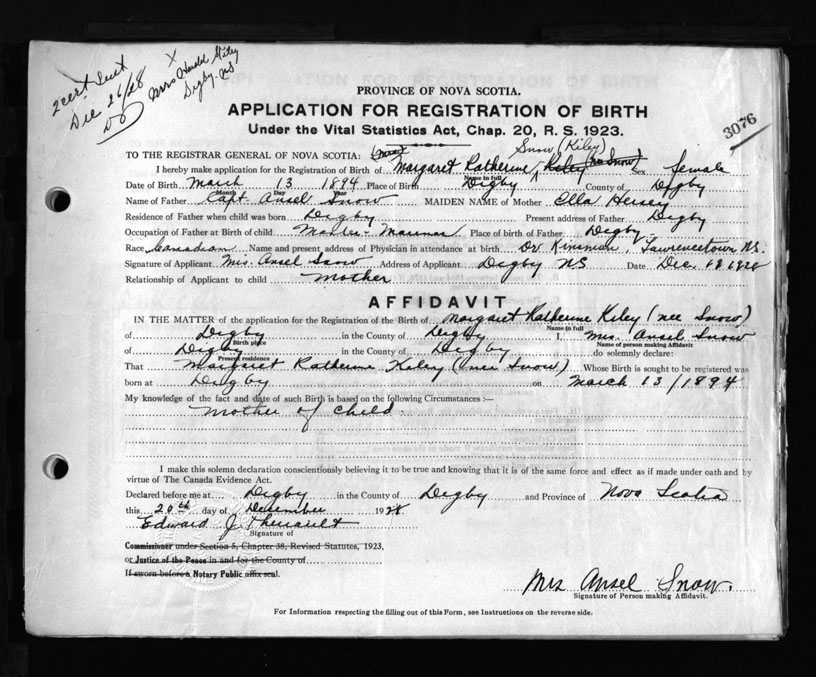 2 cert sent
Dec 26/28
X
Mrs Harold Kiley
Digby NS
PROVINCE OF NOVA SCOTIA.
APPLICATION FOR REGISTRATION OF BIRTH
Under the Vital Statistics Act, Chap. 20, R. S. 1923.
3076
TO THE REGISTRAR GENERAL OF NOVA SCOTIA: Snow (Kiley)
I hereby make application for the Registration of Birth of Margaret Katherine Kiley (nee Snow) Sex female
Name in full
Date of Birth March 13 1894 Place of Birth Digby County of Digby
Month Day Year
Name of Father Capt. Ansel Snow MAIDEN NAME of Mother Ella Hersey
Residence of Father when child was born Digby Present address of Father Digby
Occupation of Father at Birth of child Master-Mariner Place of birth of Father Digby
Race Canadian Name and present address of Physician in attendance at birth Dr Kinsman, Lawrencetown N.S.
Signature of Applicant Mrs. Ansel Snow Address of Applicant Digby NS Date Dec.
Relationship of Applicant to child mother
AFFIDAVIT
IN THE MATTER of the application for the Registration of the Birth of Margaret Katherine Kiley (nee Snow)
Name in full
of Digby in the County of Digby I, Mrs. Ansel Snow
Birth place Name of person making Affidavit
of Digby in the County of Digby do solemnly declare:
Present residence
That Margaret Katherine Kiley (nee Snow) Whose Birth is sought to be registered was
born at Digby on March 13/1894
My knowledge of the fact and date of such Birth is based on the following Circumstances :—
Mother of child.
I make this solemn declaration conscientiously believing it to be true and knowing that it is of the same force and effect as if made under oath and by
virtue of The Canada Evidence Act.
Declared before me at Digby in the County of Digby and Province of Nova Scotia
this 20th day of December 1928
Edward J. Theriault
Signature of
Commissioner under Section 5, Chapter 38, Revised Statutes, 1923,
or Justice of the Peace in and for the County of
If sworn before a Notary Public affix seal.
Mrs Ansel Snow.
Signature of Person making Affidavit.
For Information respecting the filling out of this Form, see Instructions on the reverse side.